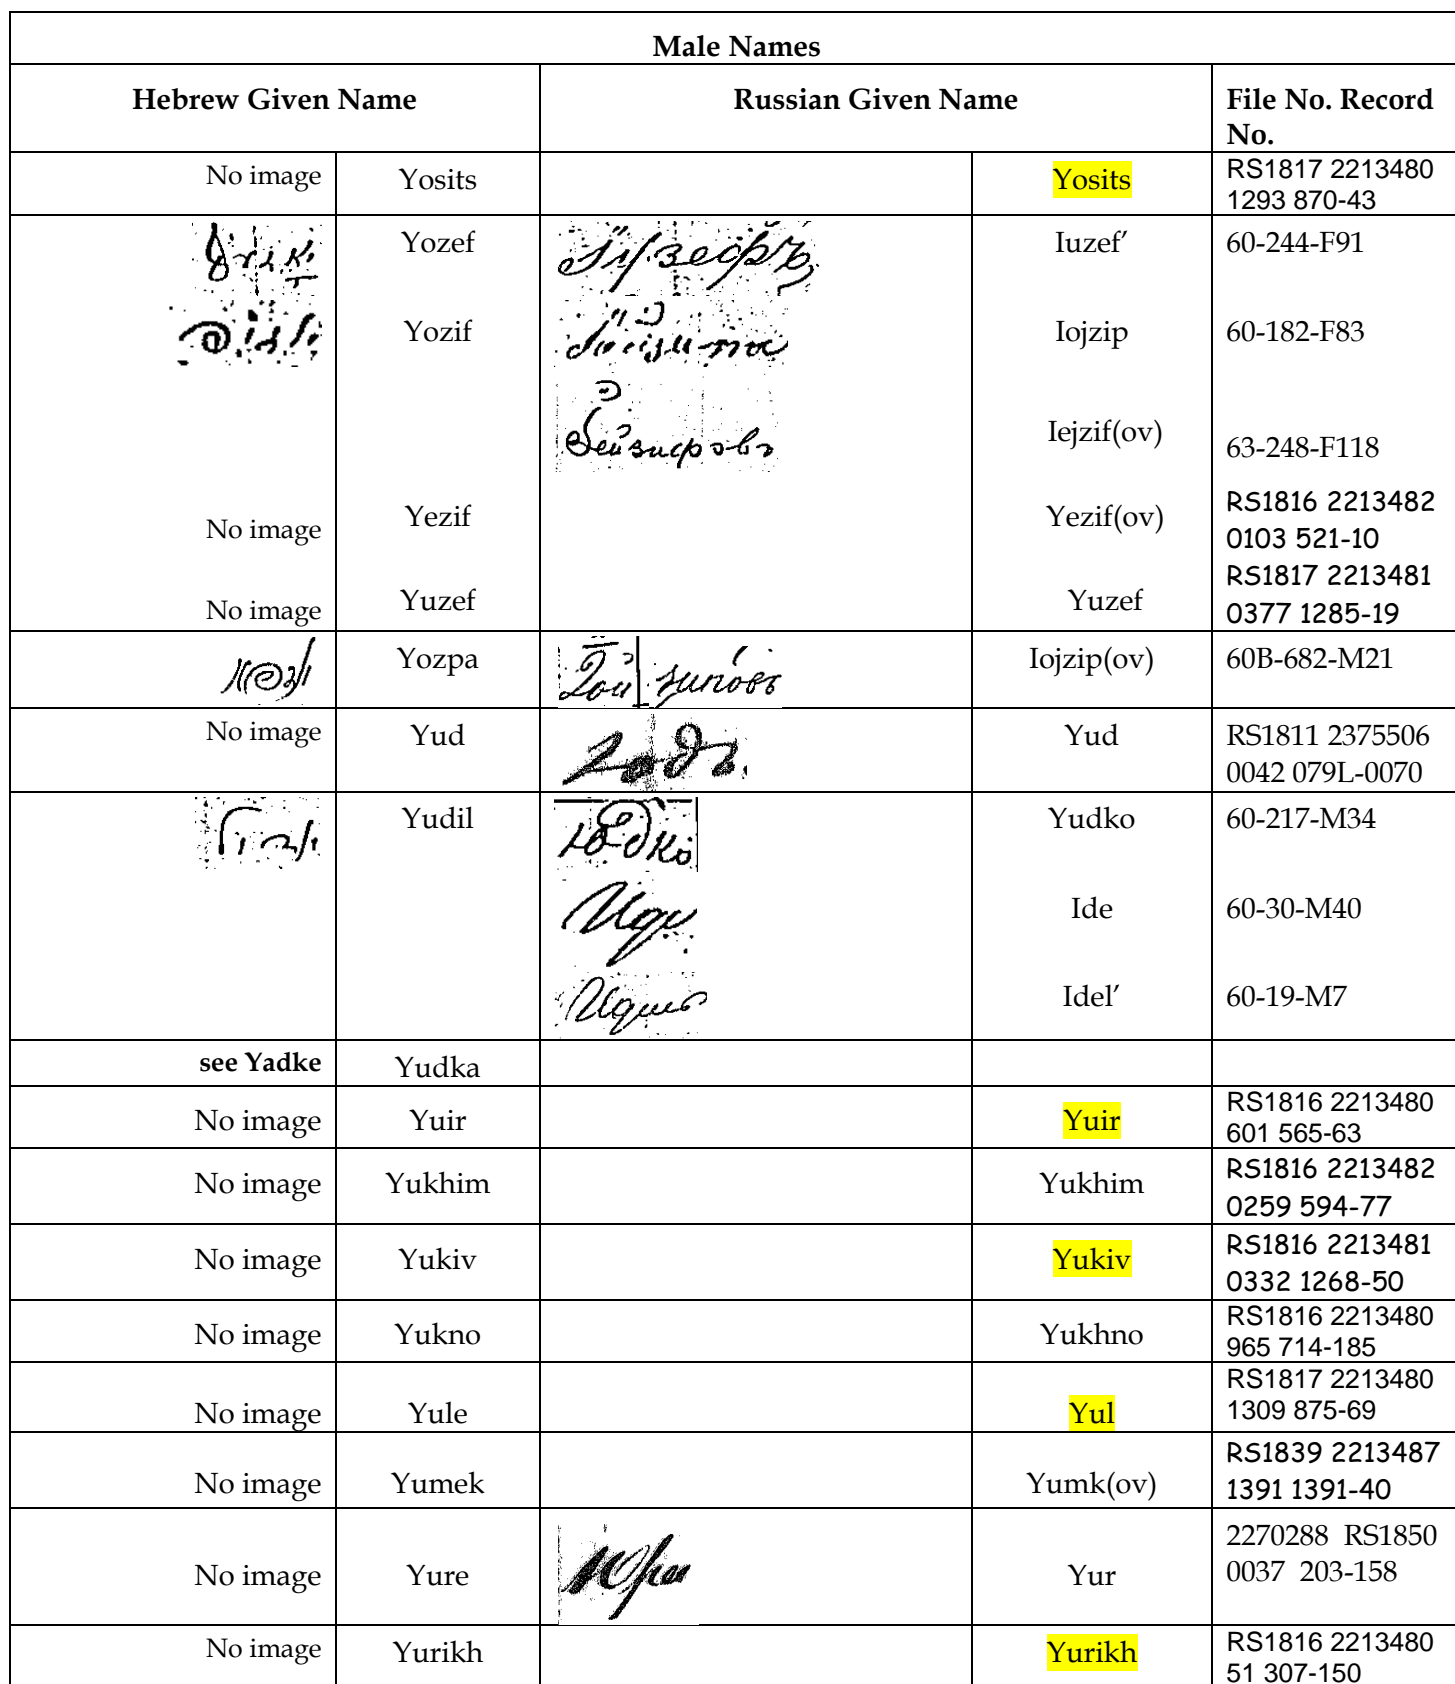 Male Names
Hebrew Given Name Russian Given Name File No. Record No.
No image Yosits Yosits RS1817 2213480
1293 870-43
Yozef Iuzef’ 60-244-F91
Yozif Iojzip 60-182-F83
Iejzif(ov) 63-248-F118
No image Yezif Yezif(ov) RS1816 2213482
0103 521-10
No image Yuzef Yuzef RS1817 2213481
0377 1285-19
Yozpa Iojzip(ov) 60B-682-M21
No image Yud Yud RS1811 2375506
0042 079L-0070
Yudil Юдко Yudko 60-217-M34
Ide 60-30-M40
Idel’ 60-19-M7
see Yadke Yudka
No image Yuir Yuir RS1816 2213480
601 565-63
No image Yukhim Yukhim RS1816 2213482
0259 594-77
No image Yukiv Yukiv RS1816 2213481
0332 1268-50
No image Yukno Yukhno RS1816 2213480
965 714-185
No image Yule Yul RS1817 2213480
1309 875-69
No image Yumek Yumk(ov) RS1839 2213487
1391 1391-40
No image Yure Yur 2270288 RS1850
0037 203-158
No image Yurikh Yurikh RS1816 2213480
51 307-150